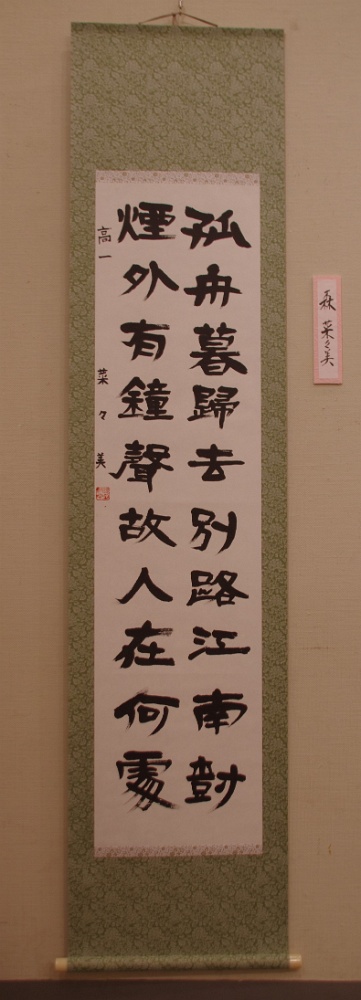 孤舟暮歸去別路江南樹
煙外有鐘聲故人在何處
高一 菜々美
森 菜々美